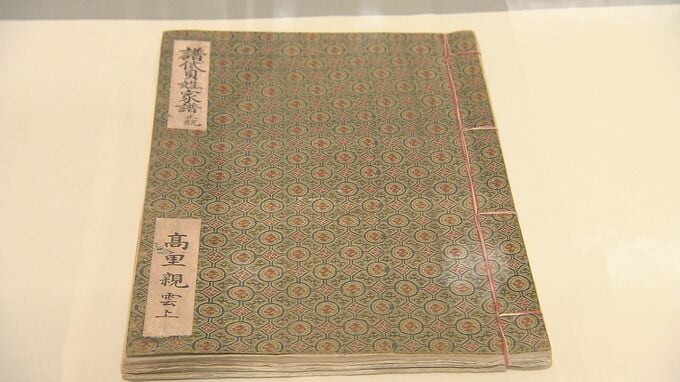 譜代貝姓家譜 正統
高里親雲上